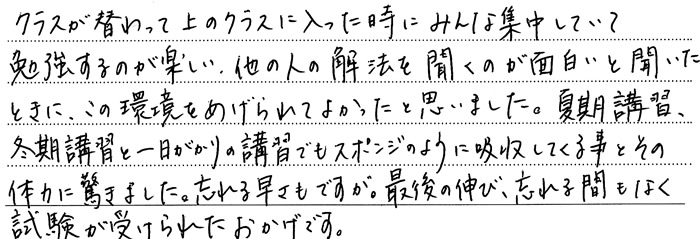 クラスが替わって上のクラスに入った時にみんな集中していて
勉強するのが楽しい、他の人の解法を聞くのが面白いと聞いた
ときに、この環境をあげられてよかったと思いました。夏期講習、
冬期講習と一日がかりの講習でもスポンジのように吸収してくる事とその
体力に驚きました。忘れる早さもですが。最後の伸び、忘れる間もなく
試験が受けられたおかげです。